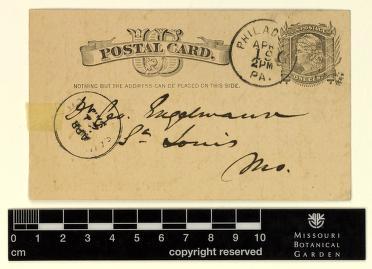 POSTAL CARD.
NOTHING BUT THE ADDRESS CAN BE PLACED ON THIS SIDE.
PHILAD
APR
2PM
PA.
U.S. POSTAGE
ONE CENT
Dr Geo. Engelmann
St Louis
Mo.
APR
0 1 2 3 4 5 6 7 8 9 10
cm
copyright reserved
MISSOURI
BOTANICAL
GARDEN